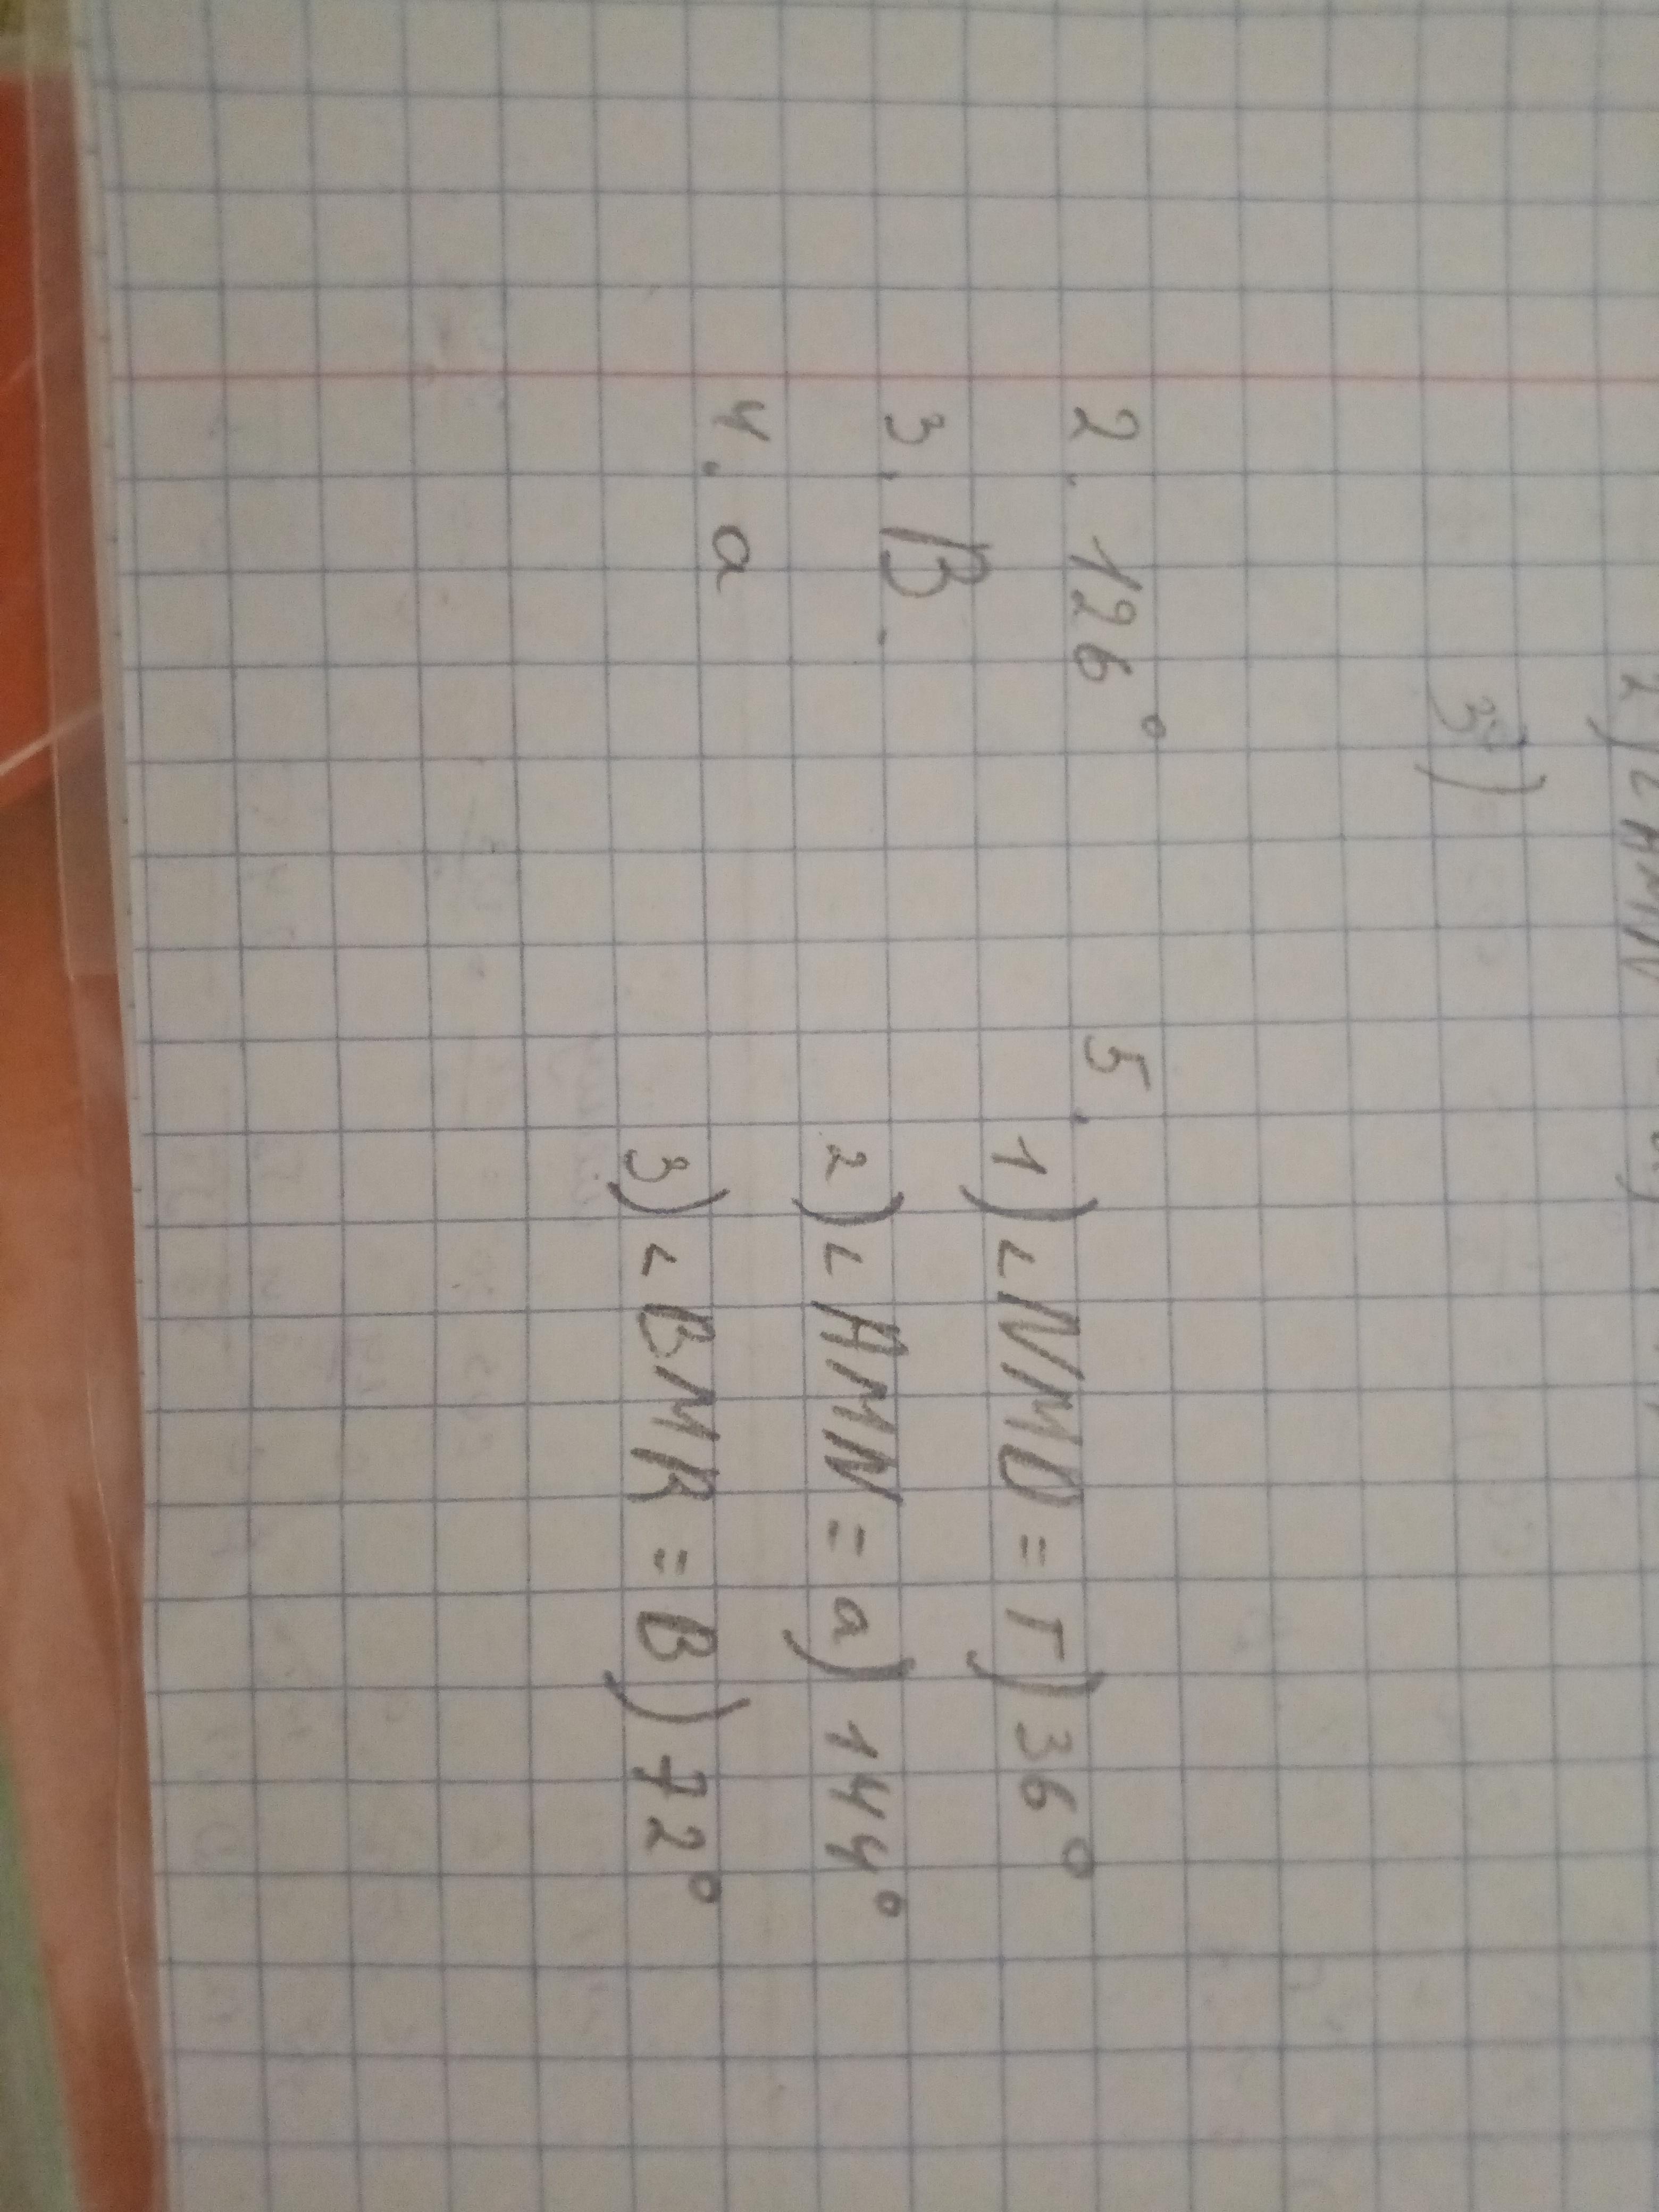 2) ∠AMN
3)
2. 126°
3. В.
4. а
5.
1) ∠NMD = Г) 36°
2) ∠AMN = а) 144°
3) ∠BMK = В) 72°